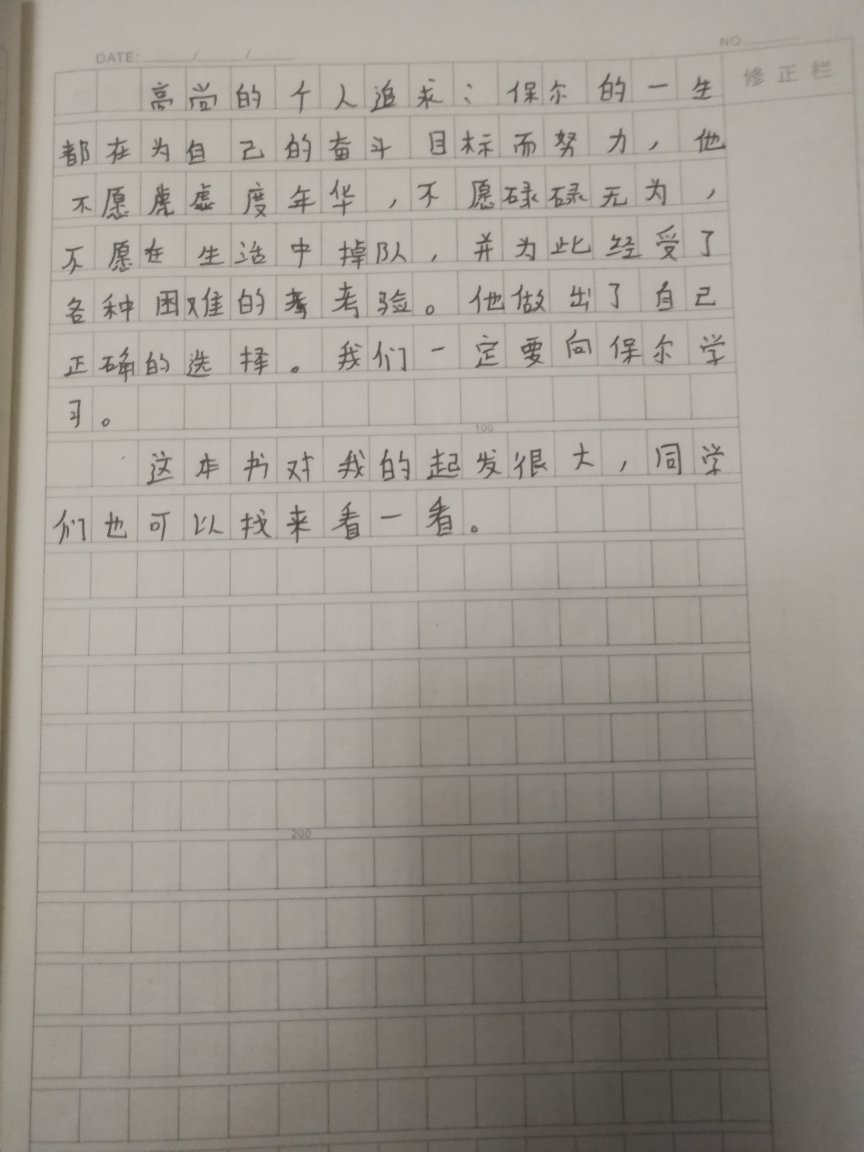 DATE: / /
NO
修正栏
高尚的个人追求：保尔的一生
都在为自己的奋斗目标而努力，他
不愿虚度年华，不愿碌碌无为，
不愿在生活中掉队，并为此经受了
各种困难的考验。他做出了自己
正确的选择。我们一定要向保尔学
习。
100
这本书对我的起发很大，同学
们也可以找来看一看。
200